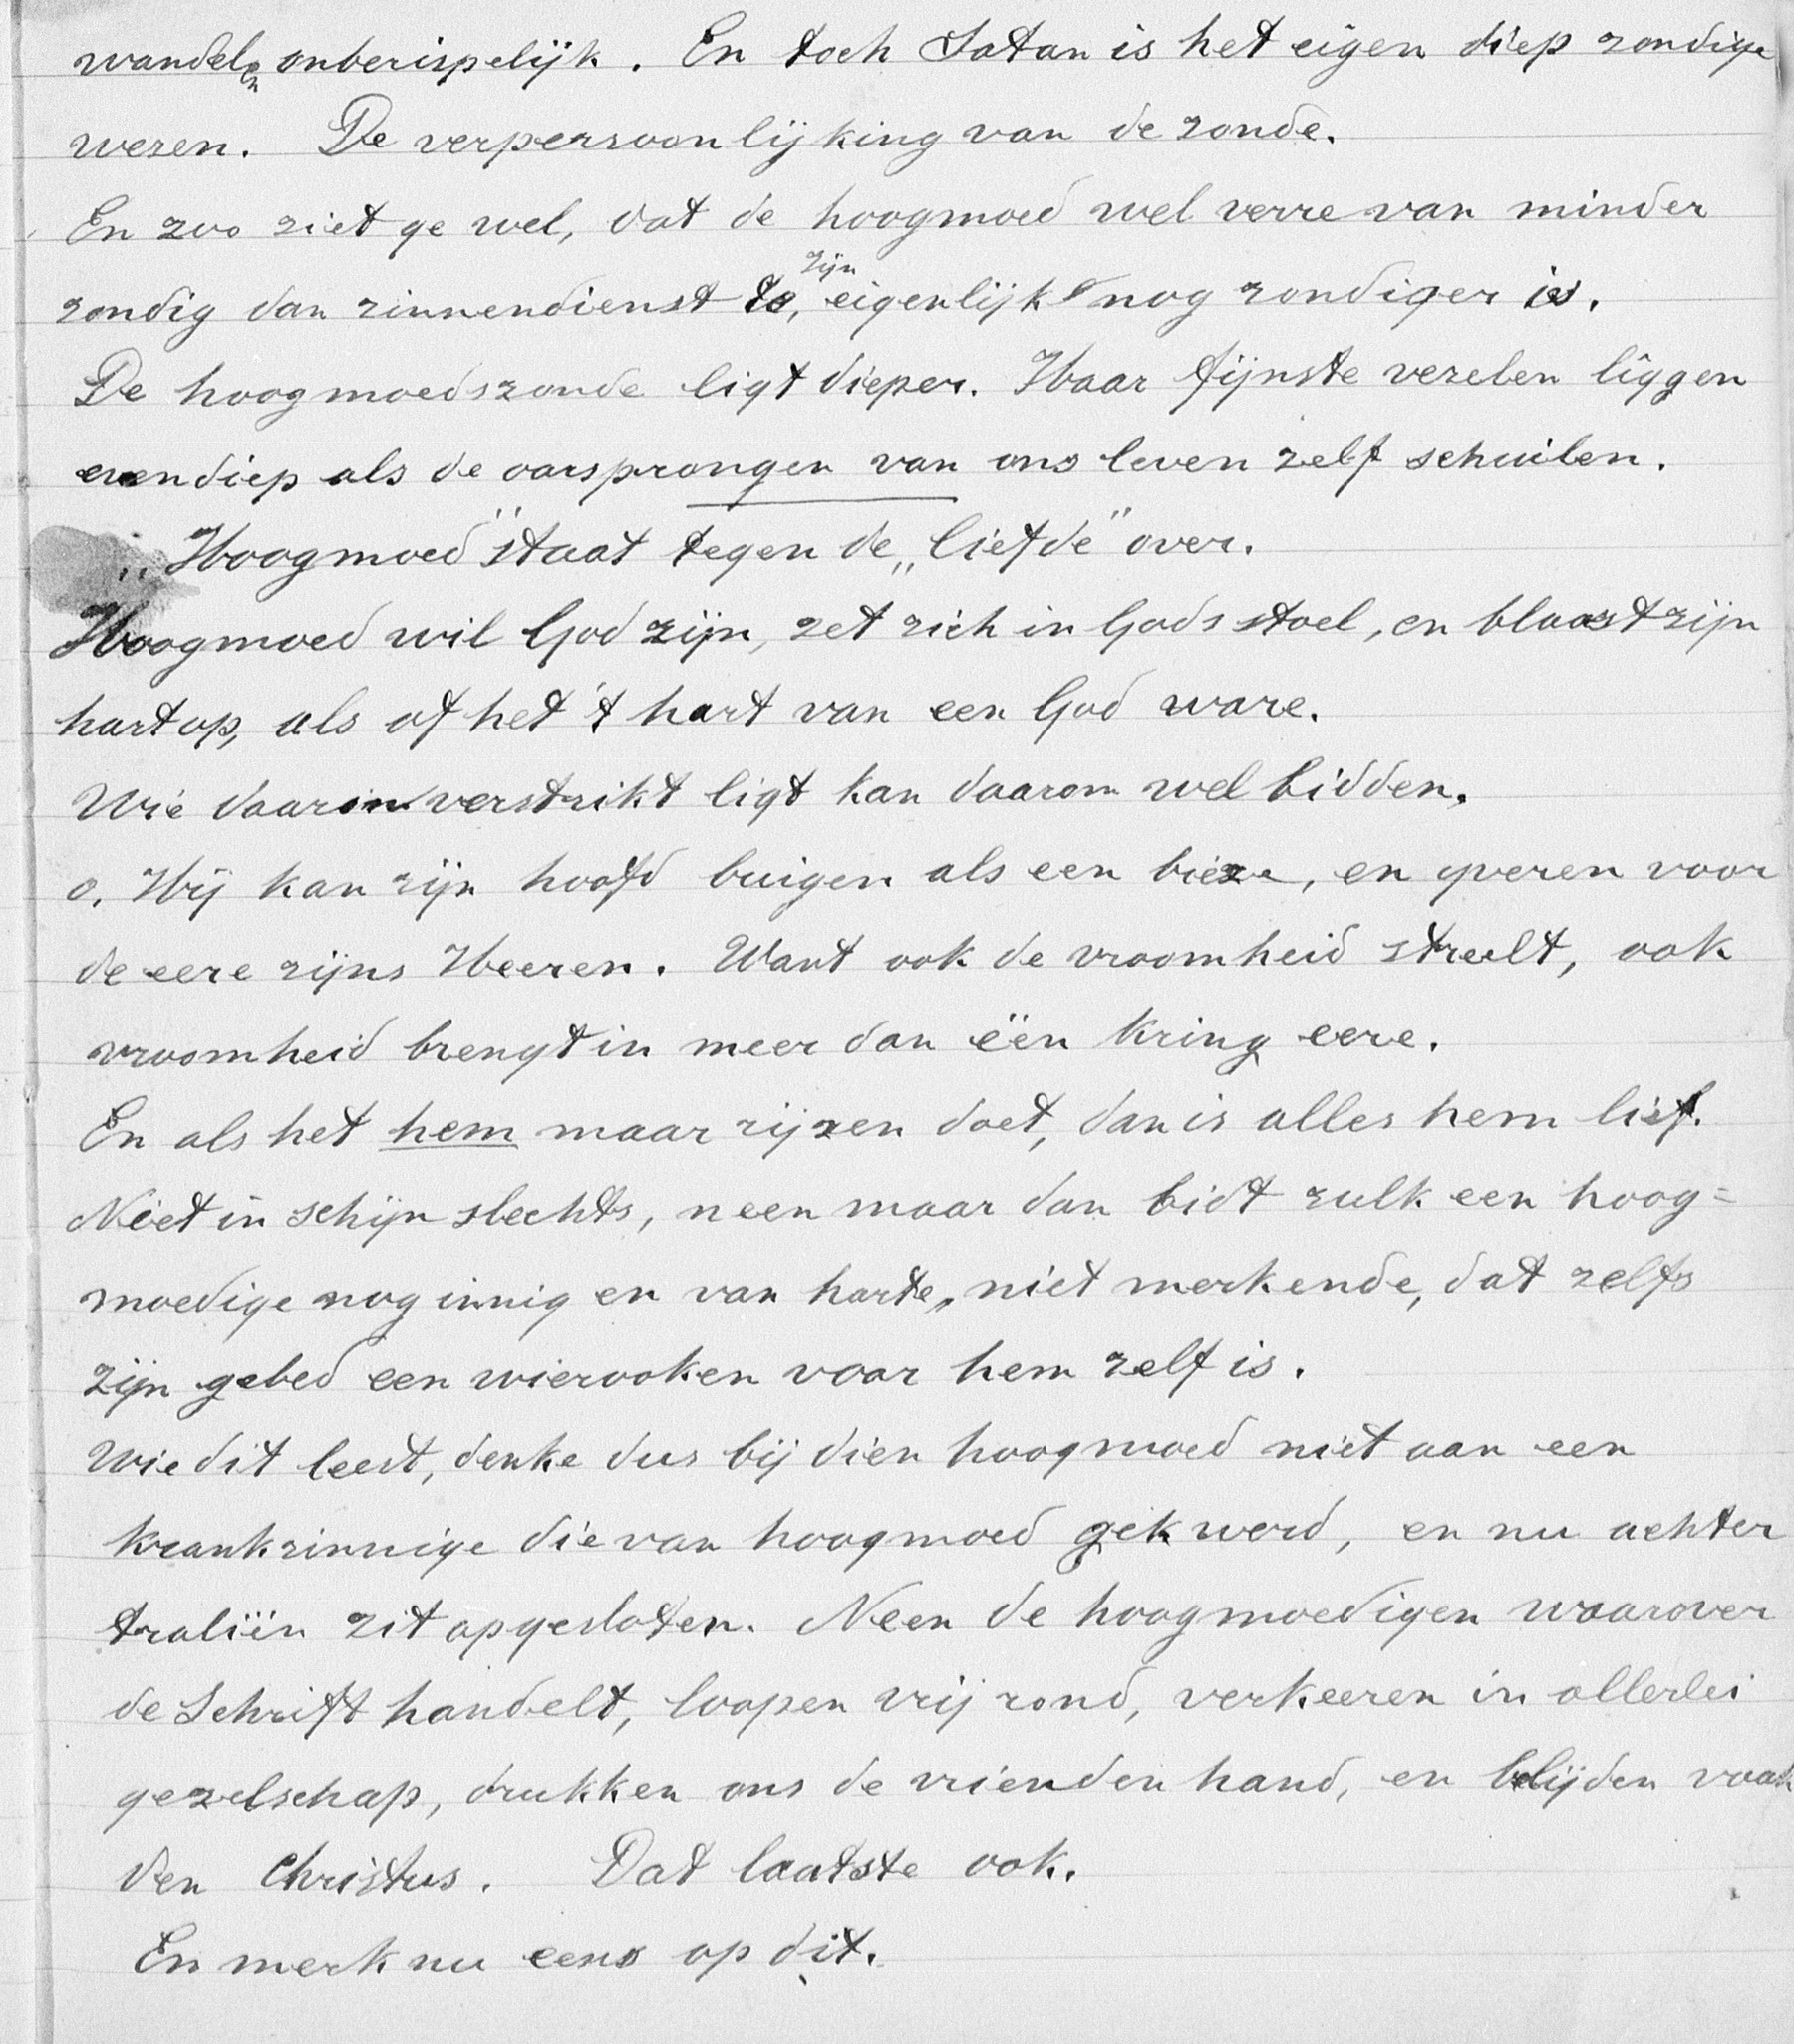 wandelen onberispelijk. En toch Satan is het eigen diep zondige
wezen. De verpersoonlijking van de zonde.
En zoo ziet ge wel, dat de hoogmoed wel verre van minder
zondig dan zinnendienst te zijn, eigenlijk nog zondiger is.
De hoogmoedszonde ligt dieper. Haar fijnste vezelen liggen
evendiep als de oorsprongen van ons leven zelf schuilen.
„Hoogmoed" staat tegen de „liefde" over.
Hoogmoed wil God zijn, zet zich in Gods stoel, en blaast zijn
hart op, als of het 't hart van een God ware.
Wie daarin verstrikt ligt kan daarom wel bidden.
o. Hij kan zijn hoofd buigen als een bieze, en yveren voor
de eere zijns Heeren. Want ook de vroomheid streelt, ook
vroomheid brengt in meer dan één kring eere.
En als het hem maar rijzen doet, dan is alles hem lief.
Niet in schijn slechts, neen maar dan bidt zulk een hoog=
moedige nog innig en van harte, niet merkende, dat zelfs
zijn gebed een wierooken voor hem zelf is.
Wie dit leest, denke dus bij dien hoogmoed niet aan een
krankzinnige die van hoogmoed gek werd, en nu achter
traliën zit opgesloten. Neen de hoogmoedigen waarover
de Schrift handelt, loopen vrij rond, verkeeren in allerlei
gezelschap, drukken ons de vrienden hand, en belijden vaak
den Christus. Dat laatste ook.
En merk nu eens op dit.